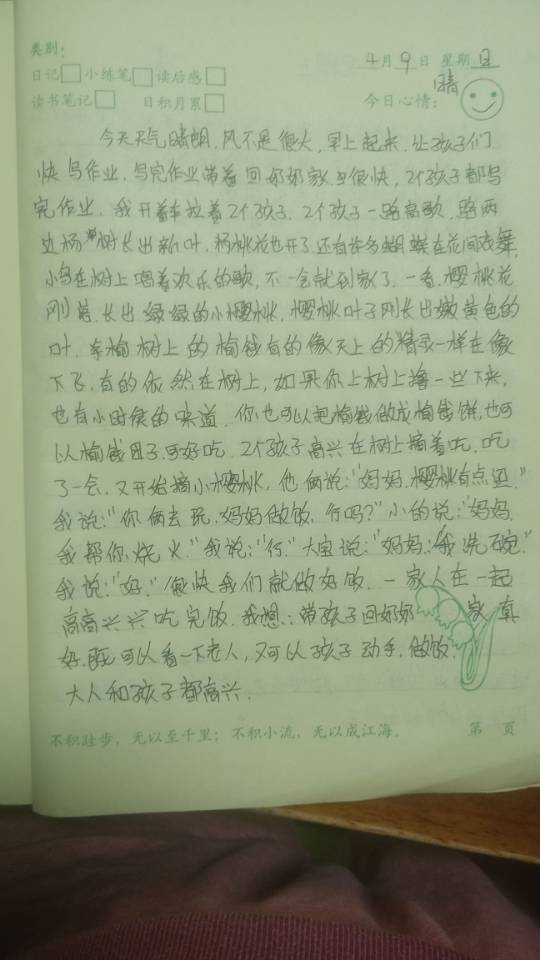 类别：
4月9日 星期日
日记□ 小练笔□ 读后感□
晴
读书笔记□ 日积月累□ 今日心情：
今天天气晴朗，风不是很大，早上起来，让孩子们
快写作业，写完作业带着回奶奶家，很快，2个孩子都写
完作业，我开着车拉着2个孩子，2个孩子一路高歌，路两
边杨树长出新叶，杨桃花也开了，还有许多蝴蝶在花间飞舞，
小鸟在树上唱着欢乐的歌，不一会就到家了，一看，樱桃花
刚落，长出绿绿的小樱桃，樱桃叶子刚长出嫩黄色的
叶，榆树上的榆钱有的像天上的精灵一样在像
下飞，有的依然在树上，如果你上树上撸一些下来，
也有小时侯的味道，你也可以把榆钱做成榆钱饼，也可
以榆钱团子，可好吃，2个孩子高兴在树上摘着吃，吃
了一会，又开始摘小樱桃，他俩说："妈妈，樱桃有点涩。"
我说："你俩去玩，妈妈做饭，行吗？"小的说："妈妈，
我帮你烧火。"我说："行。"大宝说："妈妈，我洗碗"
我说："好。"很快我们就做好饭，一家人在一起
高高兴兴吃完饭，我想：带孩子回奶奶家真
好，既可以看一下老人，又可以孩子动手，做饭，
大人和孩子都高兴.
不积跬步，无以至千里；不积小流，无以成江海。 第 页